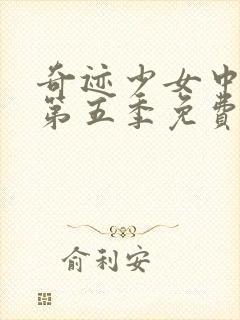 奇迹少女中
第五季免費
俞利安